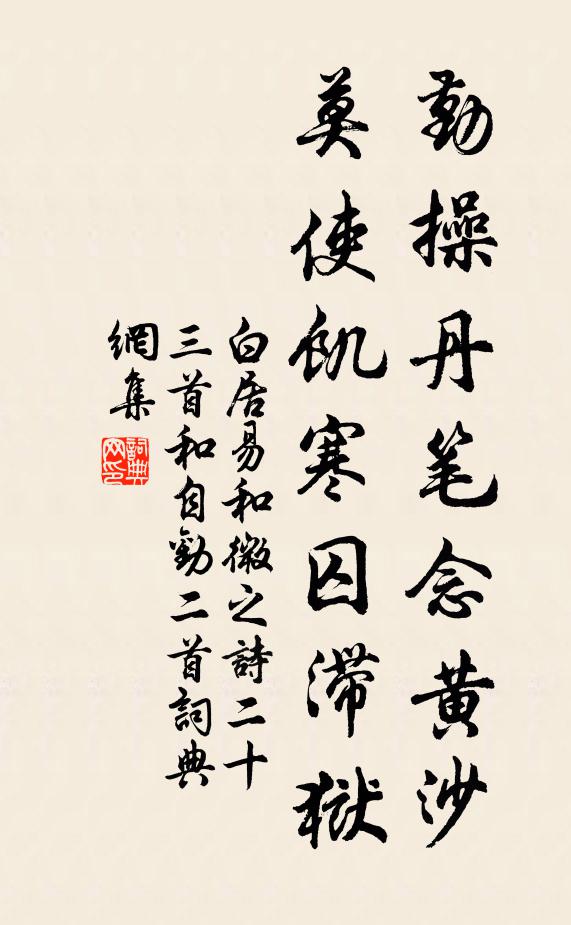 勤操丹笔念黄沙
莫使飢寒囚滯獄
白居易和微之詩二十
三首和自勸二首詞典
網集
詞典
网印